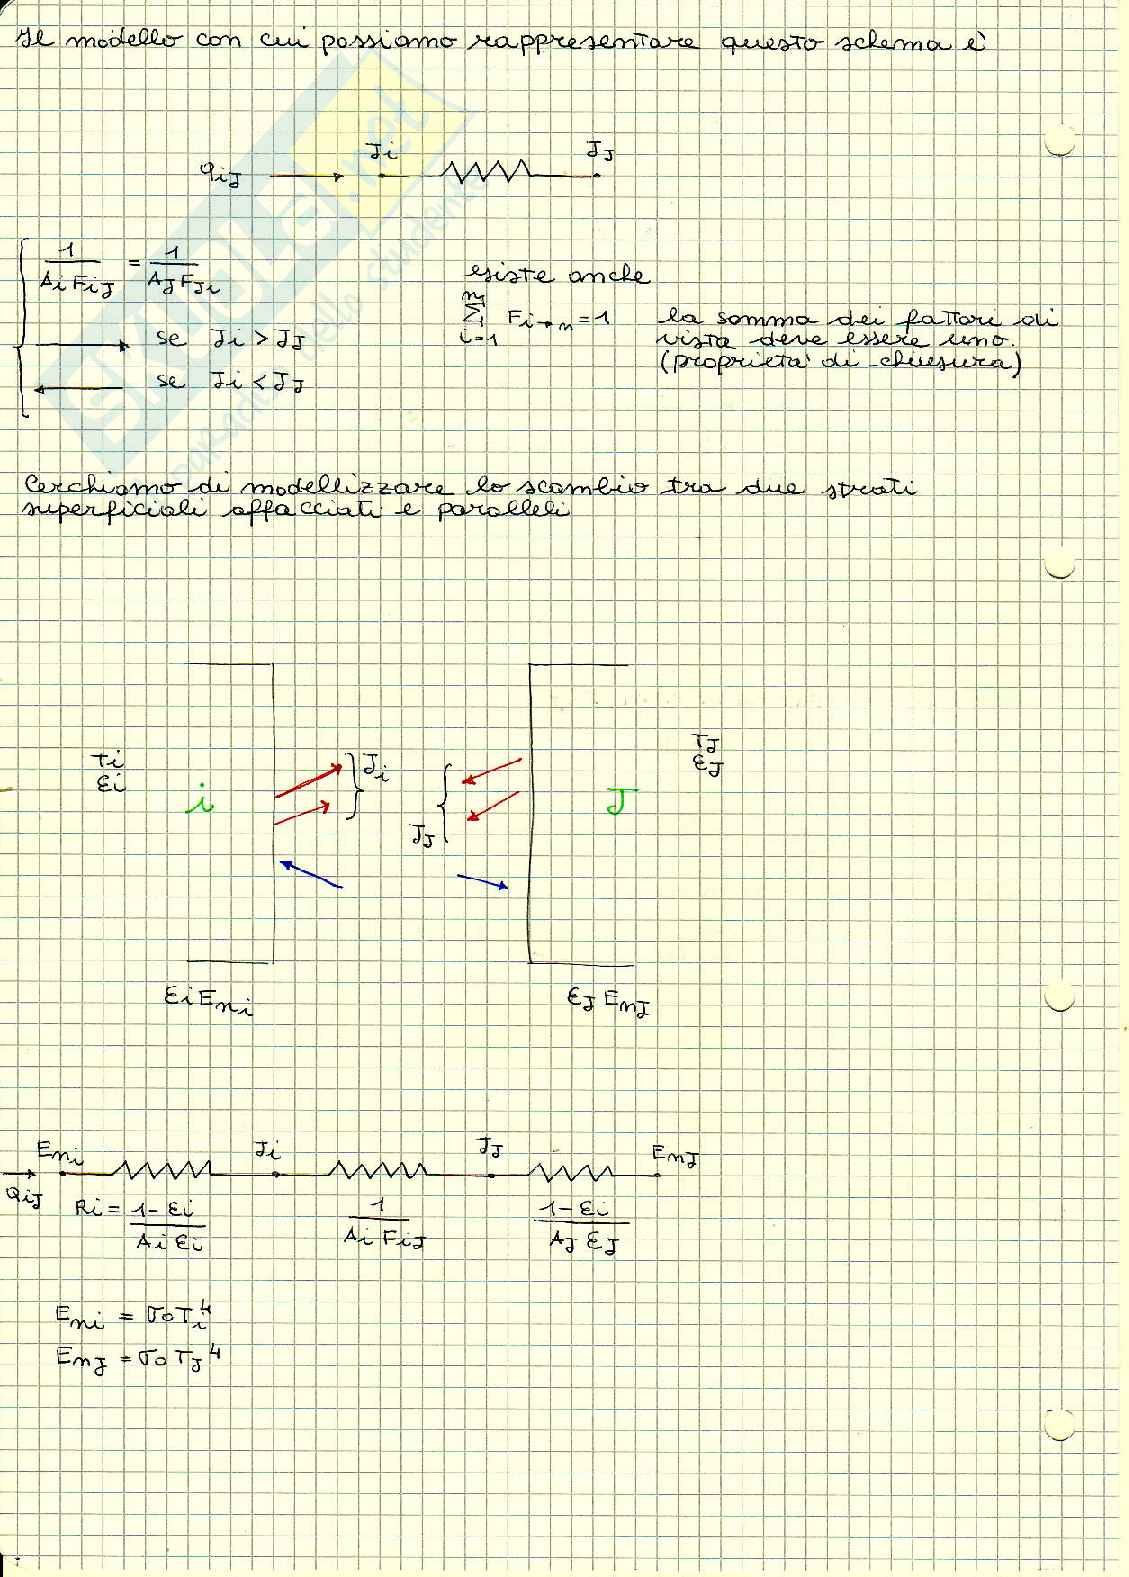 Il modello con cui possiamo rappresentare questo schema è
qiJ Ji JJ
1/(Ai FiJ) = 1/(AJ FJi)
se Ji > JJ
se Ji < JJ
esiste anche
n Σ i=1 Fi→n = 1
la somma dei fattori di
vista deve essere uno.
(proprietà di chiusura)
Cerchiamo di modellizzare lo scambio tra due strati
superficiali affacciati e paralleli
Ti
εi
i
Ji
JJ
J
TJ
εJ
εi Eni
εJ EnJ
Eni Ji JJ EnJ
QiJ
Ri = (1-εi)/(Ai εi)
1/(Ai FiJ)
(1-εi)/(AJ εJ)
Eni = σo Ti⁴
EnJ = σo TJ⁴
SKUOLA.net